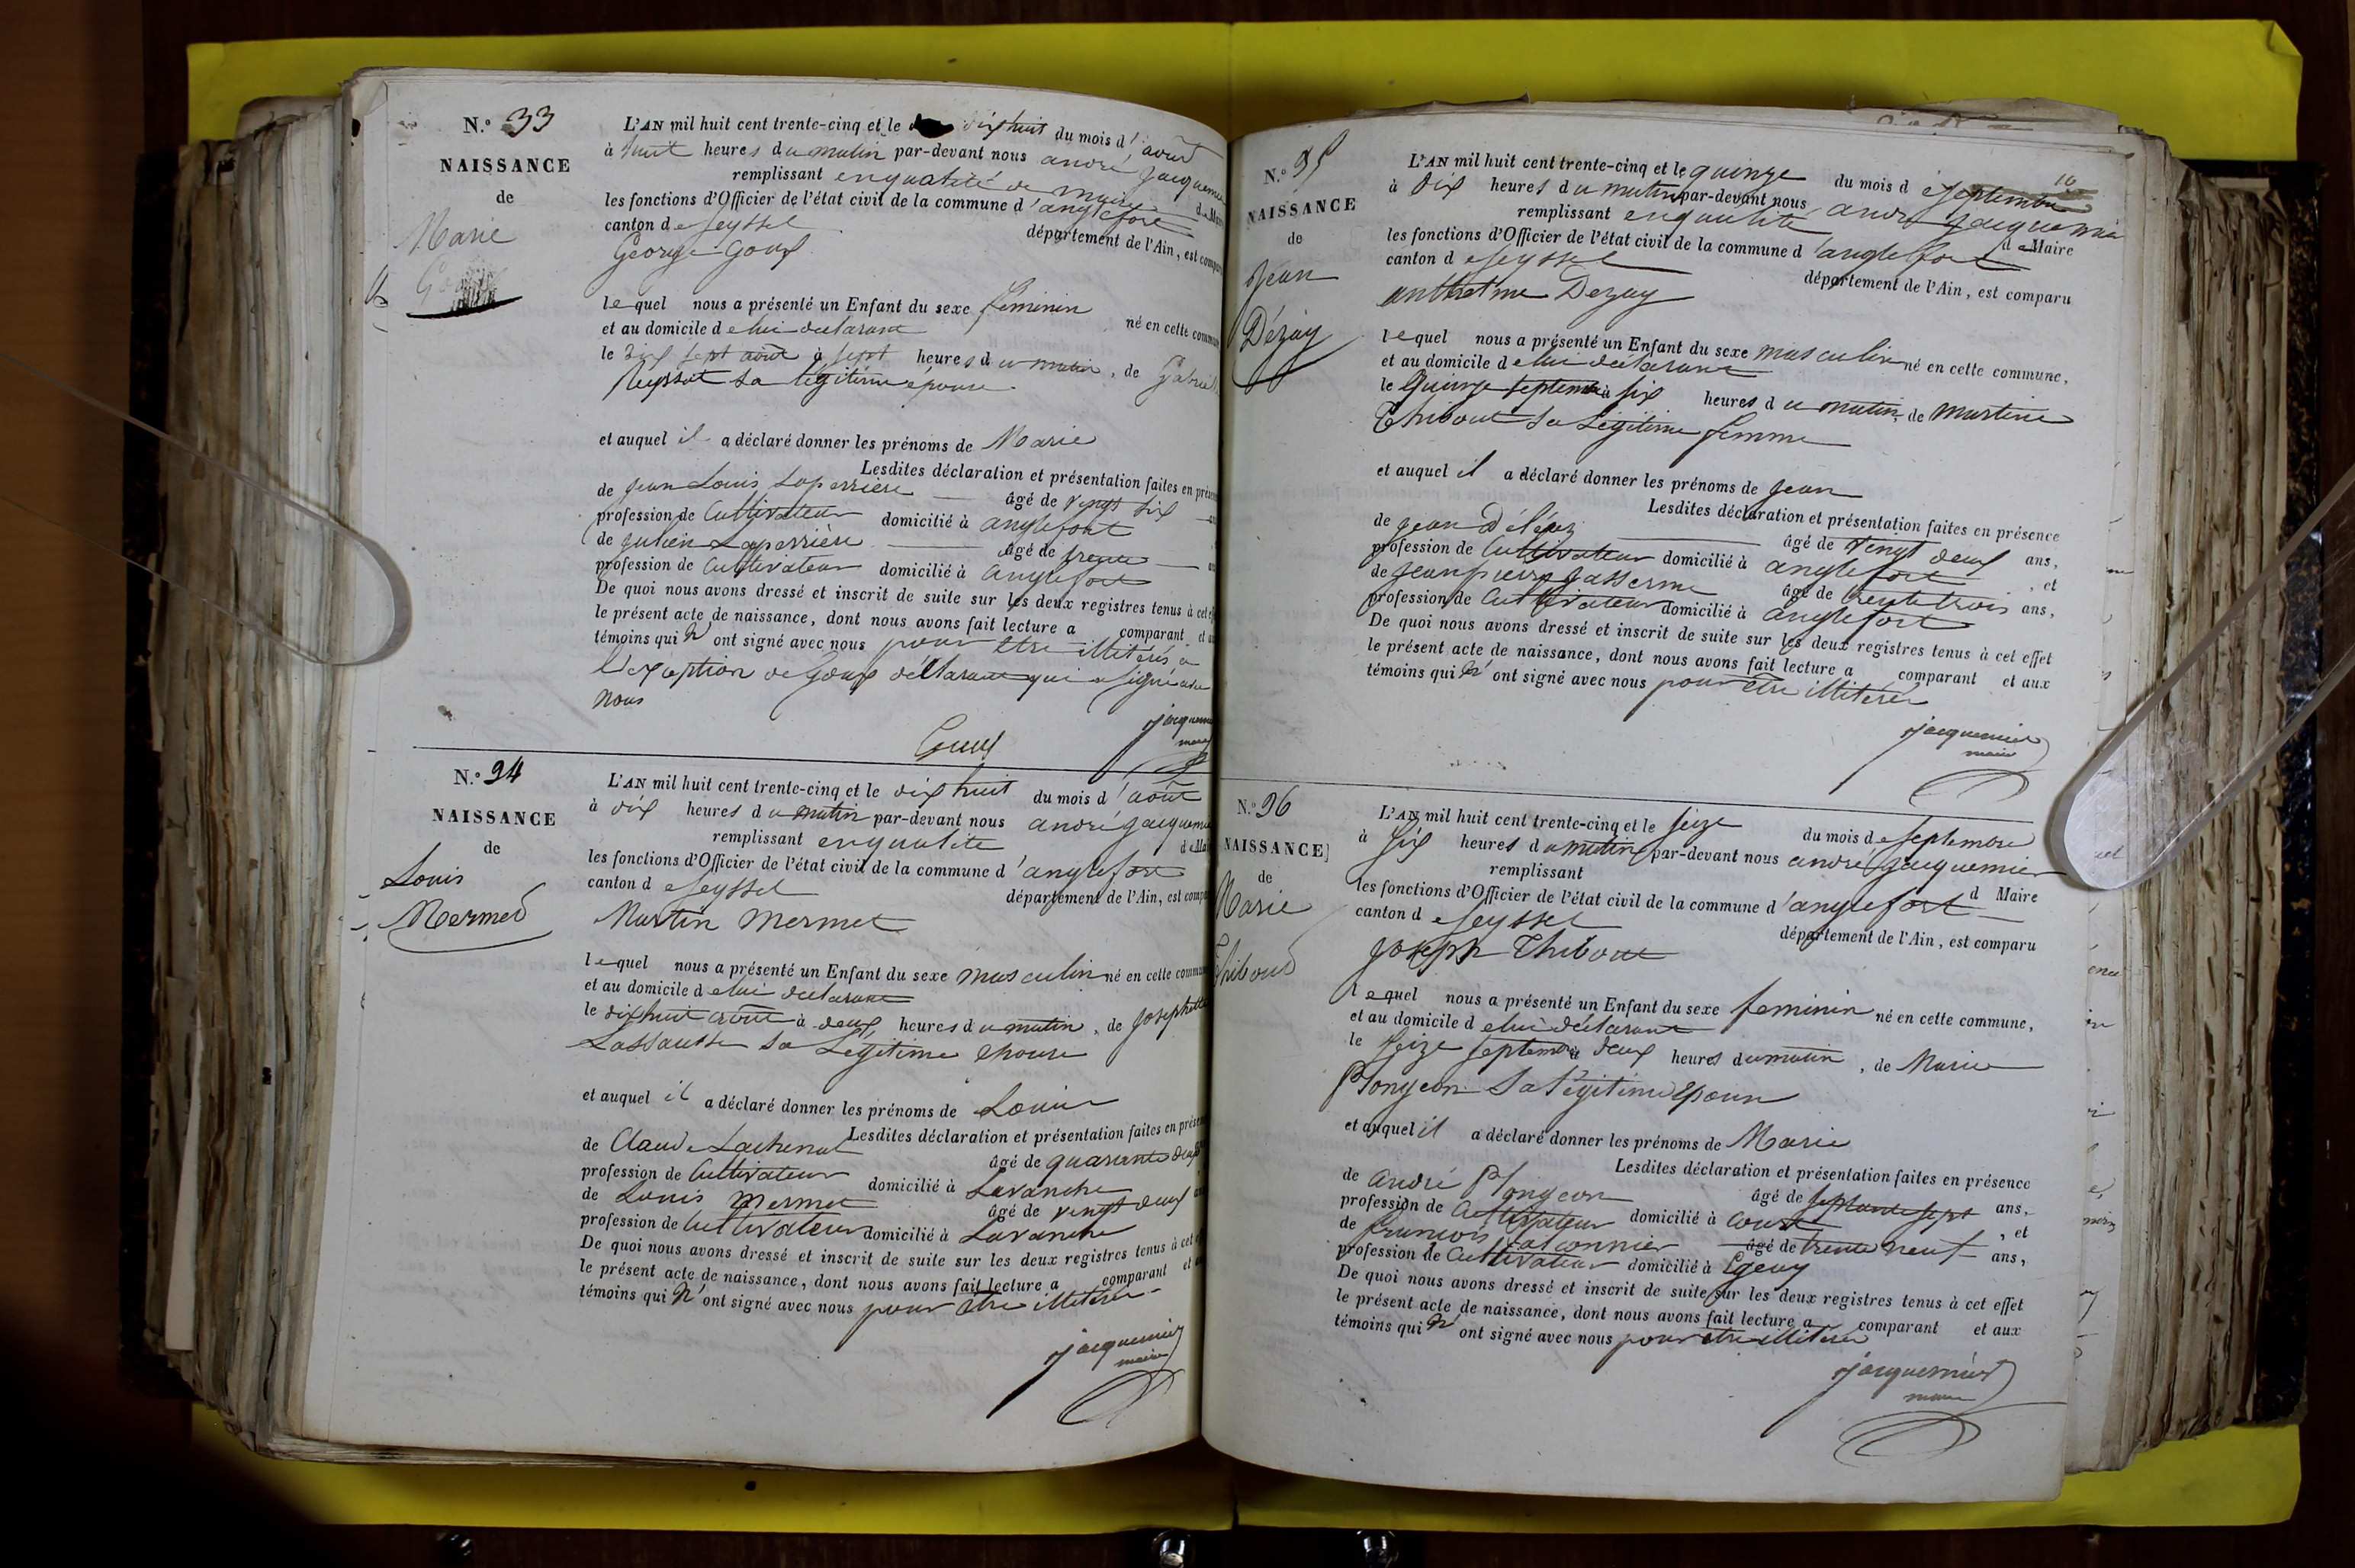 N.° 33
NAISSANCE
de
Marie
L'AN mil huit cent trente-cinq et le dix huit du mois d'août
à huit heures du matin par-devant nous andré jacquemier
remplissant en qualité de maire
les fonctions d'Officier de l'état civil de la commune d'anglefort
canton de Seyssel département de l'Ain, est comparu
George Goux
lequel nous a présenté un Enfant du sexe feminin né en cette commune
et au domicile de lui déclarant
le dix sept août à sept heures du matin, de
sa légitime épouse
et auquel il a déclaré donner les prénoms de Marie
Lesdites déclaration et présentation faites en présence
de jean Louis Laperrière âgé de vingt six
profession de Cultivateur domicilié à anglefort
de julien Laperrière âgé de trente
profession de Cultivateur domicilié à anglefort
De quoi nous avons dressé et inscrit de suite sur les deux registres tenus à cet
le présent acte de naissance, dont nous avons fait lecture a comparant et
témoins qui n'ont signé avec nous pour être illiterés a
l'exception de Goux déclarant qui a signé avec
nous
Goux
jacquemier
maire
N.° 34
NAISSANCE
de
Louis
Mermet
L'AN mil huit cent trente-cinq et le dix huit du mois d'août
à dix heures du matin par-devant nous andré jacquemier
remplissant en qualité de
les fonctions d'Officier de l'état civil de la commune d'anglefort
canton de Seyssel département de l'Ain, est comparu
Martin Mermet
lequel nous a présenté un Enfant du sexe masculin né en cette commune
et au domicile de lui déclarant
le dix huit août à deux heures du matin, de josephette
Lassausse sa Légitime épouse
et auquel il a déclaré donner les prénoms de Louis
Lesdites déclaration et présentation faites en présence
de Claude Lachenal âgé de quarante deux
profession de Cultivateur domicilié à Lavanche
de Louis Mermet âgé de vingt deux
profession de Cultivateur domicilié à Lavanche
De quoi nous avons dressé et inscrit de suite sur les deux registres tenus à cet
le présent acte de naissance, dont nous avons fait lecture a comparant et
témoins qui n'ont signé avec nous pour être illiterés
jacquemier
maire
10
N.° 35
NAISSANCE
de
Jean
Dézay
L'AN mil huit cent trente-cinq et le quinze du mois de septembre
à dix heures du matin par-devant nous andré jacquemier
remplissant en qualité de Maire
les fonctions d'Officier de l'état civil de la commune d'anglefort
canton de Seyssel département de l'Ain, est comparu
anthelme Dezay
lequel nous a présenté un Enfant du sexe masculin né en cette commune,
et au domicile de lui déclarant
le quinze septembre à six heures du matin, de martine
Thibout sa Légitime femme
et auquel il a déclaré donner les prénoms de jean
Lesdites déclaration et présentation faites en présence
de jean âgé de vingt deux ans,
profession de Cultivateur domicilié à anglefort, et
de jean pierre âgé de trente trois ans,
profession de Cultivateur domicilié à anglefort
De quoi nous avons dressé et inscrit de suite sur les deux registres tenus à cet effet
le présent acte de naissance, dont nous avons fait lecture a comparant et aux
témoins qui n'ont signé avec nous pour être illiterés
jacquemier
maire
N.° 36
NAISSANCE
de
Marie
Thiboud
L'AN mil huit cent trente-cinq et le seize du mois de septembre
à six heures du matin par-devant nous andré jacquemier
remplissant d Maire
les fonctions d'Officier de l'état civil de la commune d'anglefort
canton de Seyssel département de l'Ain, est comparu
joseph Thibout
lequel nous a présenté un Enfant du sexe feminin né en cette commune,
et au domicile de lui déclarant
le seize septembre à deux heures du matin, de Marie
Plongeon sa légitime épouse
et auquel il a déclaré donner les prénoms de Marie
Lesdites déclaration et présentation faites en présence
de andré Plongeon âgé de septante sept ans,
profession de Cultivateur domicilié à, et
de francois falconnier âgé de trente neuf ans,
profession de Cultivateur domicilié à
De quoi nous avons dressé et inscrit de suite sur les deux registres tenus à cet effet
le présent acte de naissance, dont nous avons fait lecture a comparant et aux
témoins qui n'ont signé avec nous pour être illiterés
jacquemier
maire